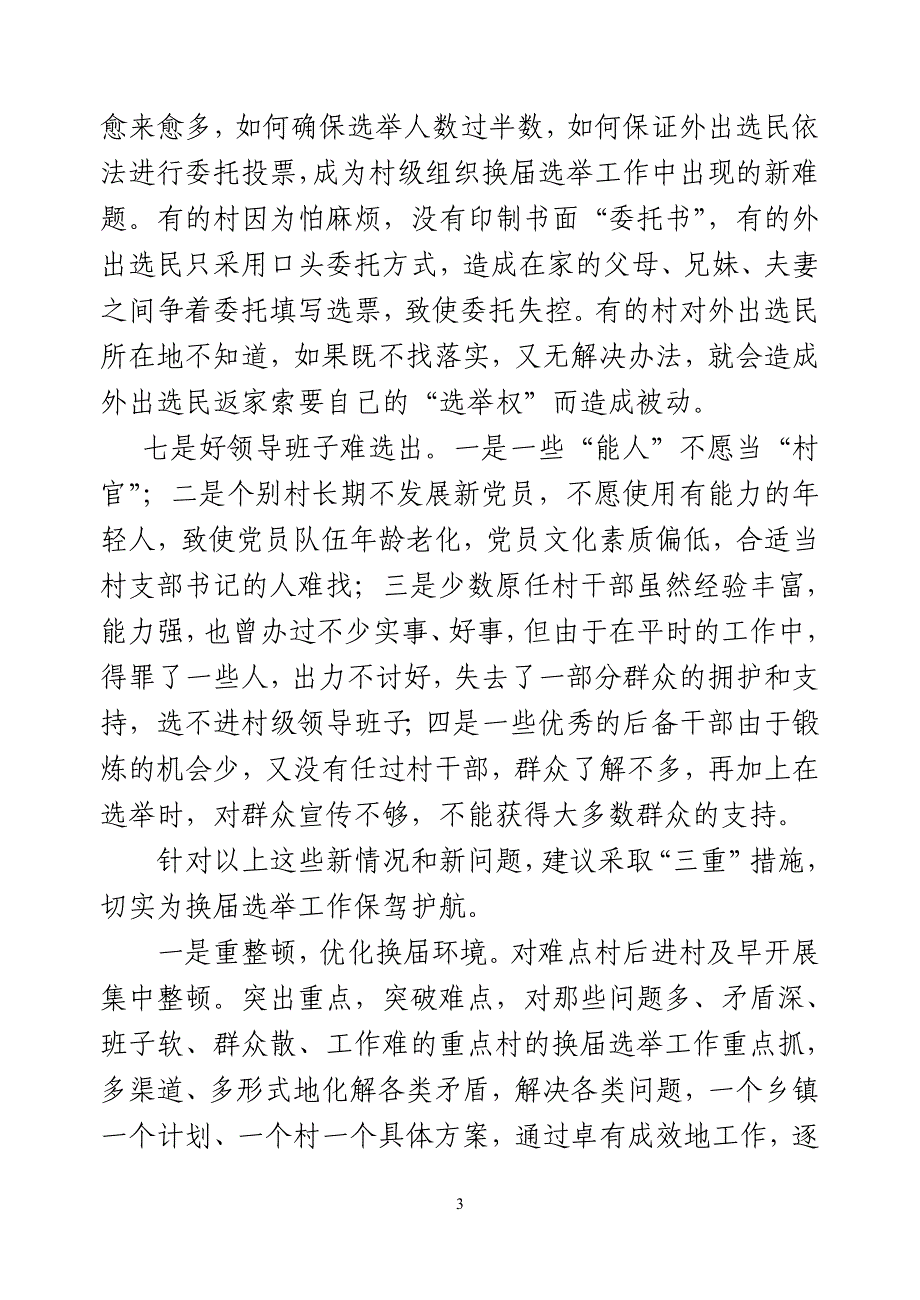 愈来愈多，如何确保选举人数过半数，如何保证外出选民依
法进行委托投票，成为村级组织换届选举工作中出现的新难
题。有的村因为怕麻烦，没有印制书面“委托书”，有的外
出选民只采用口头委托方式，造成在家的父母、兄妹、夫妻
之间争着委托填写选票，致使委托失控。有的村对外出选民
所在地不知道，如果既不找落实，又无解决办法，就会造成
外出选民返家索要自己的“选举权”而造成被动。
七是好领导班子难选出。一是一些“能人”不愿当“村
官”；二是个别村长期不发展新党员，不愿使用有能力的年
轻人，致使党员队伍年龄老化，党员文化素质偏低，合适当
村支部书记的人难找；三是少数原任村干部虽然经验丰富，
能力强，也曾办过不少实事、好事，但由于在平时的工作中，
得罪了一些人，出力不讨好，失去了一部分群众的拥护和支
持，选不进村级领导班子；四是一些优秀的后备干部由于锻
炼的机会少，又没有任过村干部，群众了解不多，再加上在
选举时，对群众宣传不够，不能获得大多数群众的支持。
针对以上这些新情况和新问题，建议采取“三重”措施，
切实为换届选举工作保驾护航。
一是重整顿，优化换届环境。对难点村后进村及早开展
集中整顿。突出重点，突破难点，对那些问题多、矛盾深、
班子软、群众散、工作难的重点村的换届选举工作重点抓，
多渠道、多形式地化解各类矛盾，解决各类问题，一个乡镇
一个计划、一个村一个具体方案，通过卓有成效地工作，逐
3